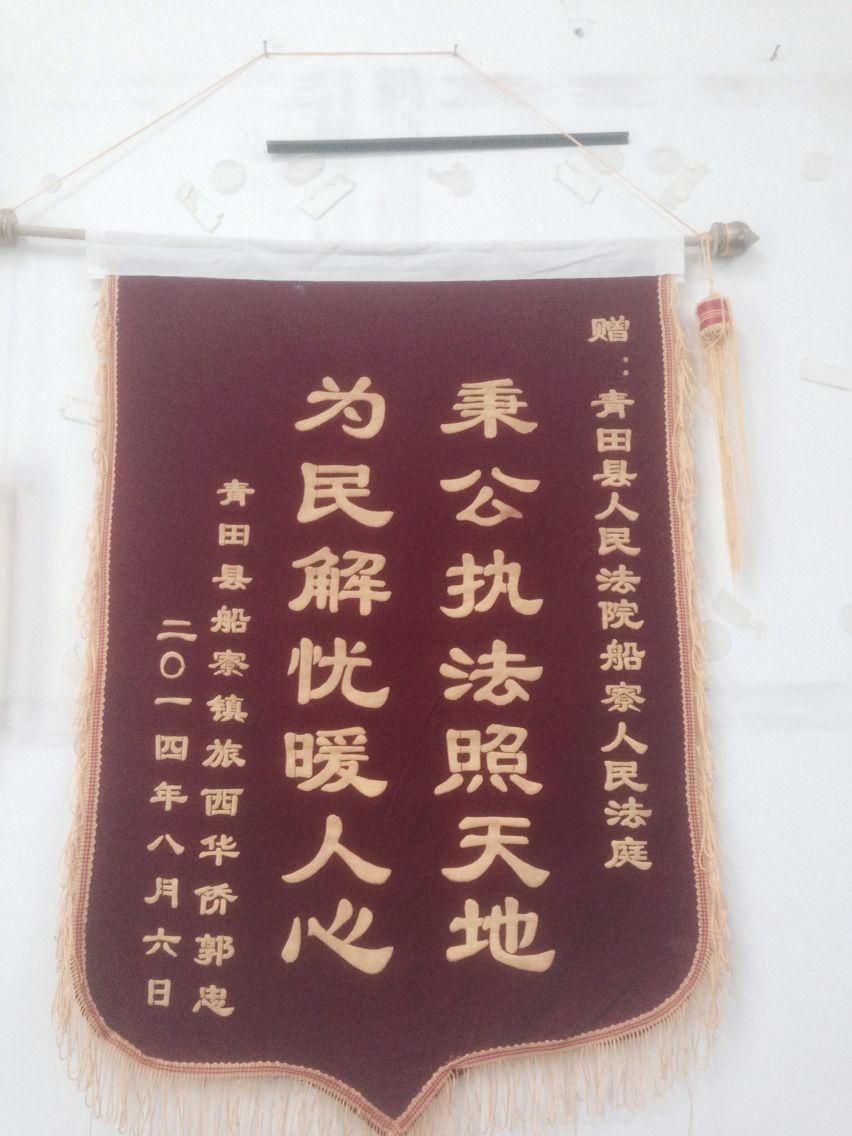 赠：青田县人民法院船寮人民法庭
秉公执法照天地
为民解忧暖人心
青田县船寮镇旅西华侨郭忠
二〇一四年八月六日